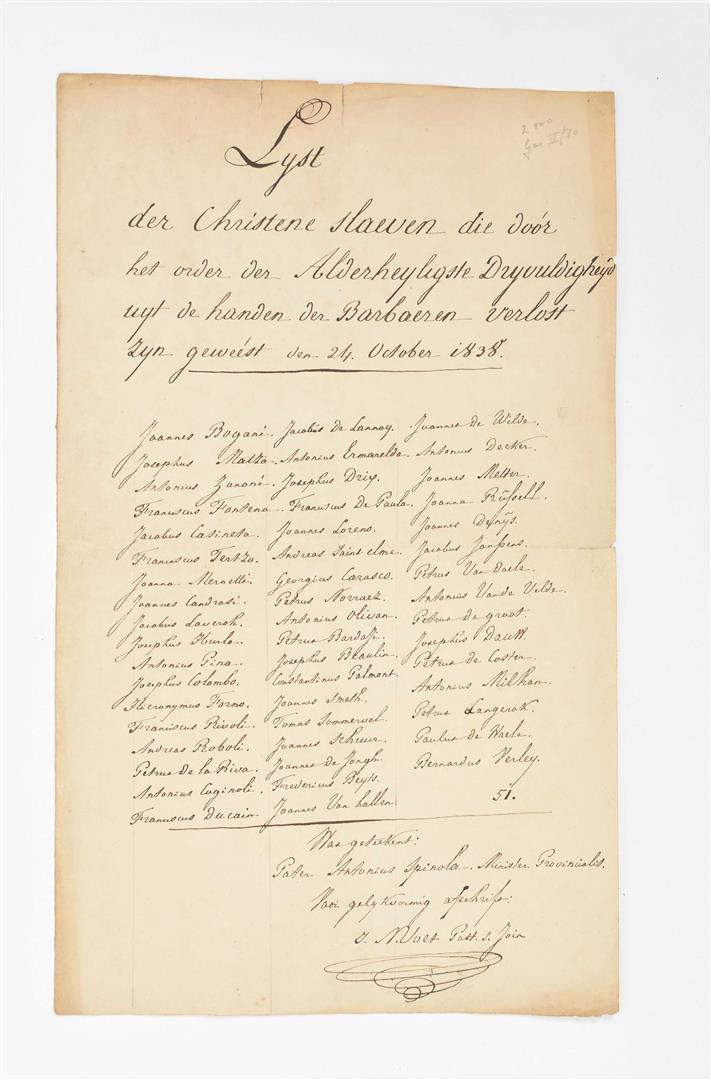 Lyst
2.000
der Christene slaeven die doór
het order der Alderheyligste Dryvuldigheyd
uyt de handen der Barbaeren verlost
zyn geweést den 24. October 1838.
Joannes Bogani. Jacobus de Lannoy. Joannes de Wilde.
Josephus Matza. Antonius Ermarelda. Antonius Decker.
Antonius Zanoni. Josephus Drix. Joannes Metter.
Franciscus Fontena. Franciscus De Paula. Joanna Rüssell.
Jacobus Casineta. Joannes Loreno. Joannes Denÿs.
Franciscus Tertzo. Andreas Saint elme. Jacobus Janssens.
Joanna Mernetti. Georgius Carasco. Petrus Van Daele.
Joannes Candrasi. Petrus Norraez. Antonius Vande Velde.
Jacobus Laveroh. Antonius Olivan. Petrus de groot.
Josephus Hurla. Petrus Bardasi. Josephus Dauw.
Antonius Pina. Josephus Beaulin. Petrus de Coster.
Josephus Colombo. Constantinus Palmont. Antonius Milhan.
Hieronymus Forno. Joannes Smeth. Petrus Langerak.
Franciscus Rivoli. Tomas Sommervel. Paulus de Waele.
Andreas Roboli. Joannes Scheuer. Bernardus Verley.
Petrus de la Riva. Joannes de Jongh.
Antonius Coginoli. Fredericus Beyts. 51.
Franciscus Ducain. Joannes Van hallen.
Was geteekent:
Pater Antonius Spinola. Minister Provincialis.
Voor gelykvormig afschrift:
J. N. Voet Past. S. Jain